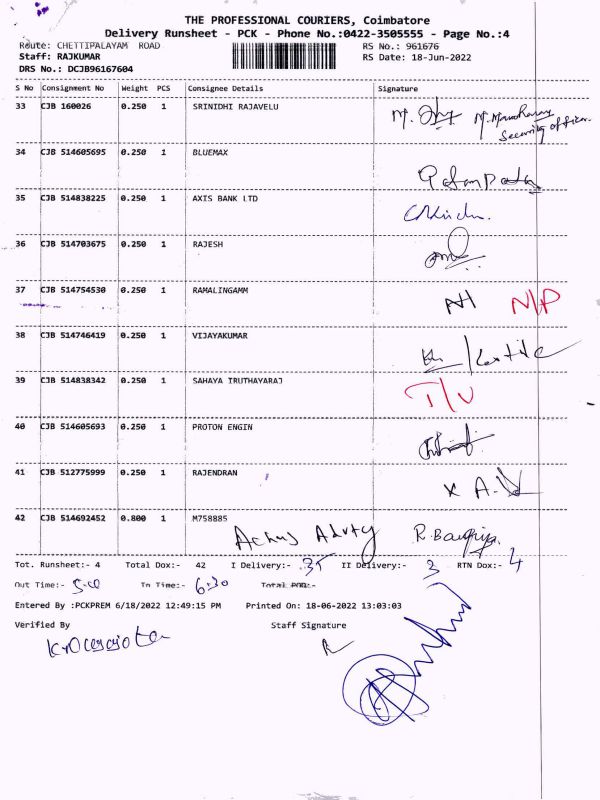 THE PROFESSIONAL COURIERS, Coimbatore
Delivery Runsheet - PCK - Phone No.:0422-3505555 - Page No.:4
Route: CHETTIPALAYAM ROAD RS No.: 961676
Staff: RAJKUMAR RS Date: 18-Jun-2022
DRS No.: DCJB96167604
S No Consignment No Weight PCS Consignee Details Signature
33 CJB 160026 0.250 1 SRINIDHI RAJAVELU
Security officer
34 CJB 514605695 0.250 1 BLUEMAX
35 CJB 514838225 0.250 1 AXIS BANK LTD
36 CJB 514703675 0.250 1 RAJESH
37 CJB 514754530 0.250 1 RAMALINGAMM N/P
38 CJB 514746419 0.250 1 VIJAYAKUMAR
39 CJB 514838342 0.250 1 SAHAYA IRUTHAYARAJ T/U
40 CJB 514605693 0.250 1 PROTON ENGIN
41 CJB 512775999 0.250 1 RAJENDRAN
42 CJB 514692452 0.800 1 M758885
Tot. Runsheet:- 4 Total Dox:- 42 I Delivery:- 35 II Delivery:- 3 RTN Dox:- 4
Out Time:- 5-00 In Time:- 6-30 Total POD:-
Entered By :PCKPREM 6/18/2022 12:49:15 PM Printed On: 18-06-2022 13:03:03
Verified By Staff Signature